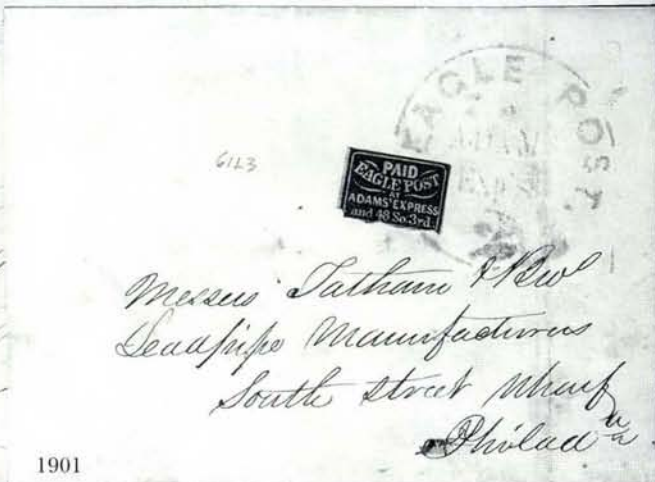 EAGLE POST
ADAMS
6123
PAID
EAGLE POST
AT
ADAMS' EXPRESS
and 48 So. 3rd.
Messers Tatham & Bro
Leadpipe Manufacturers
South Street Wharf
Philada
1901